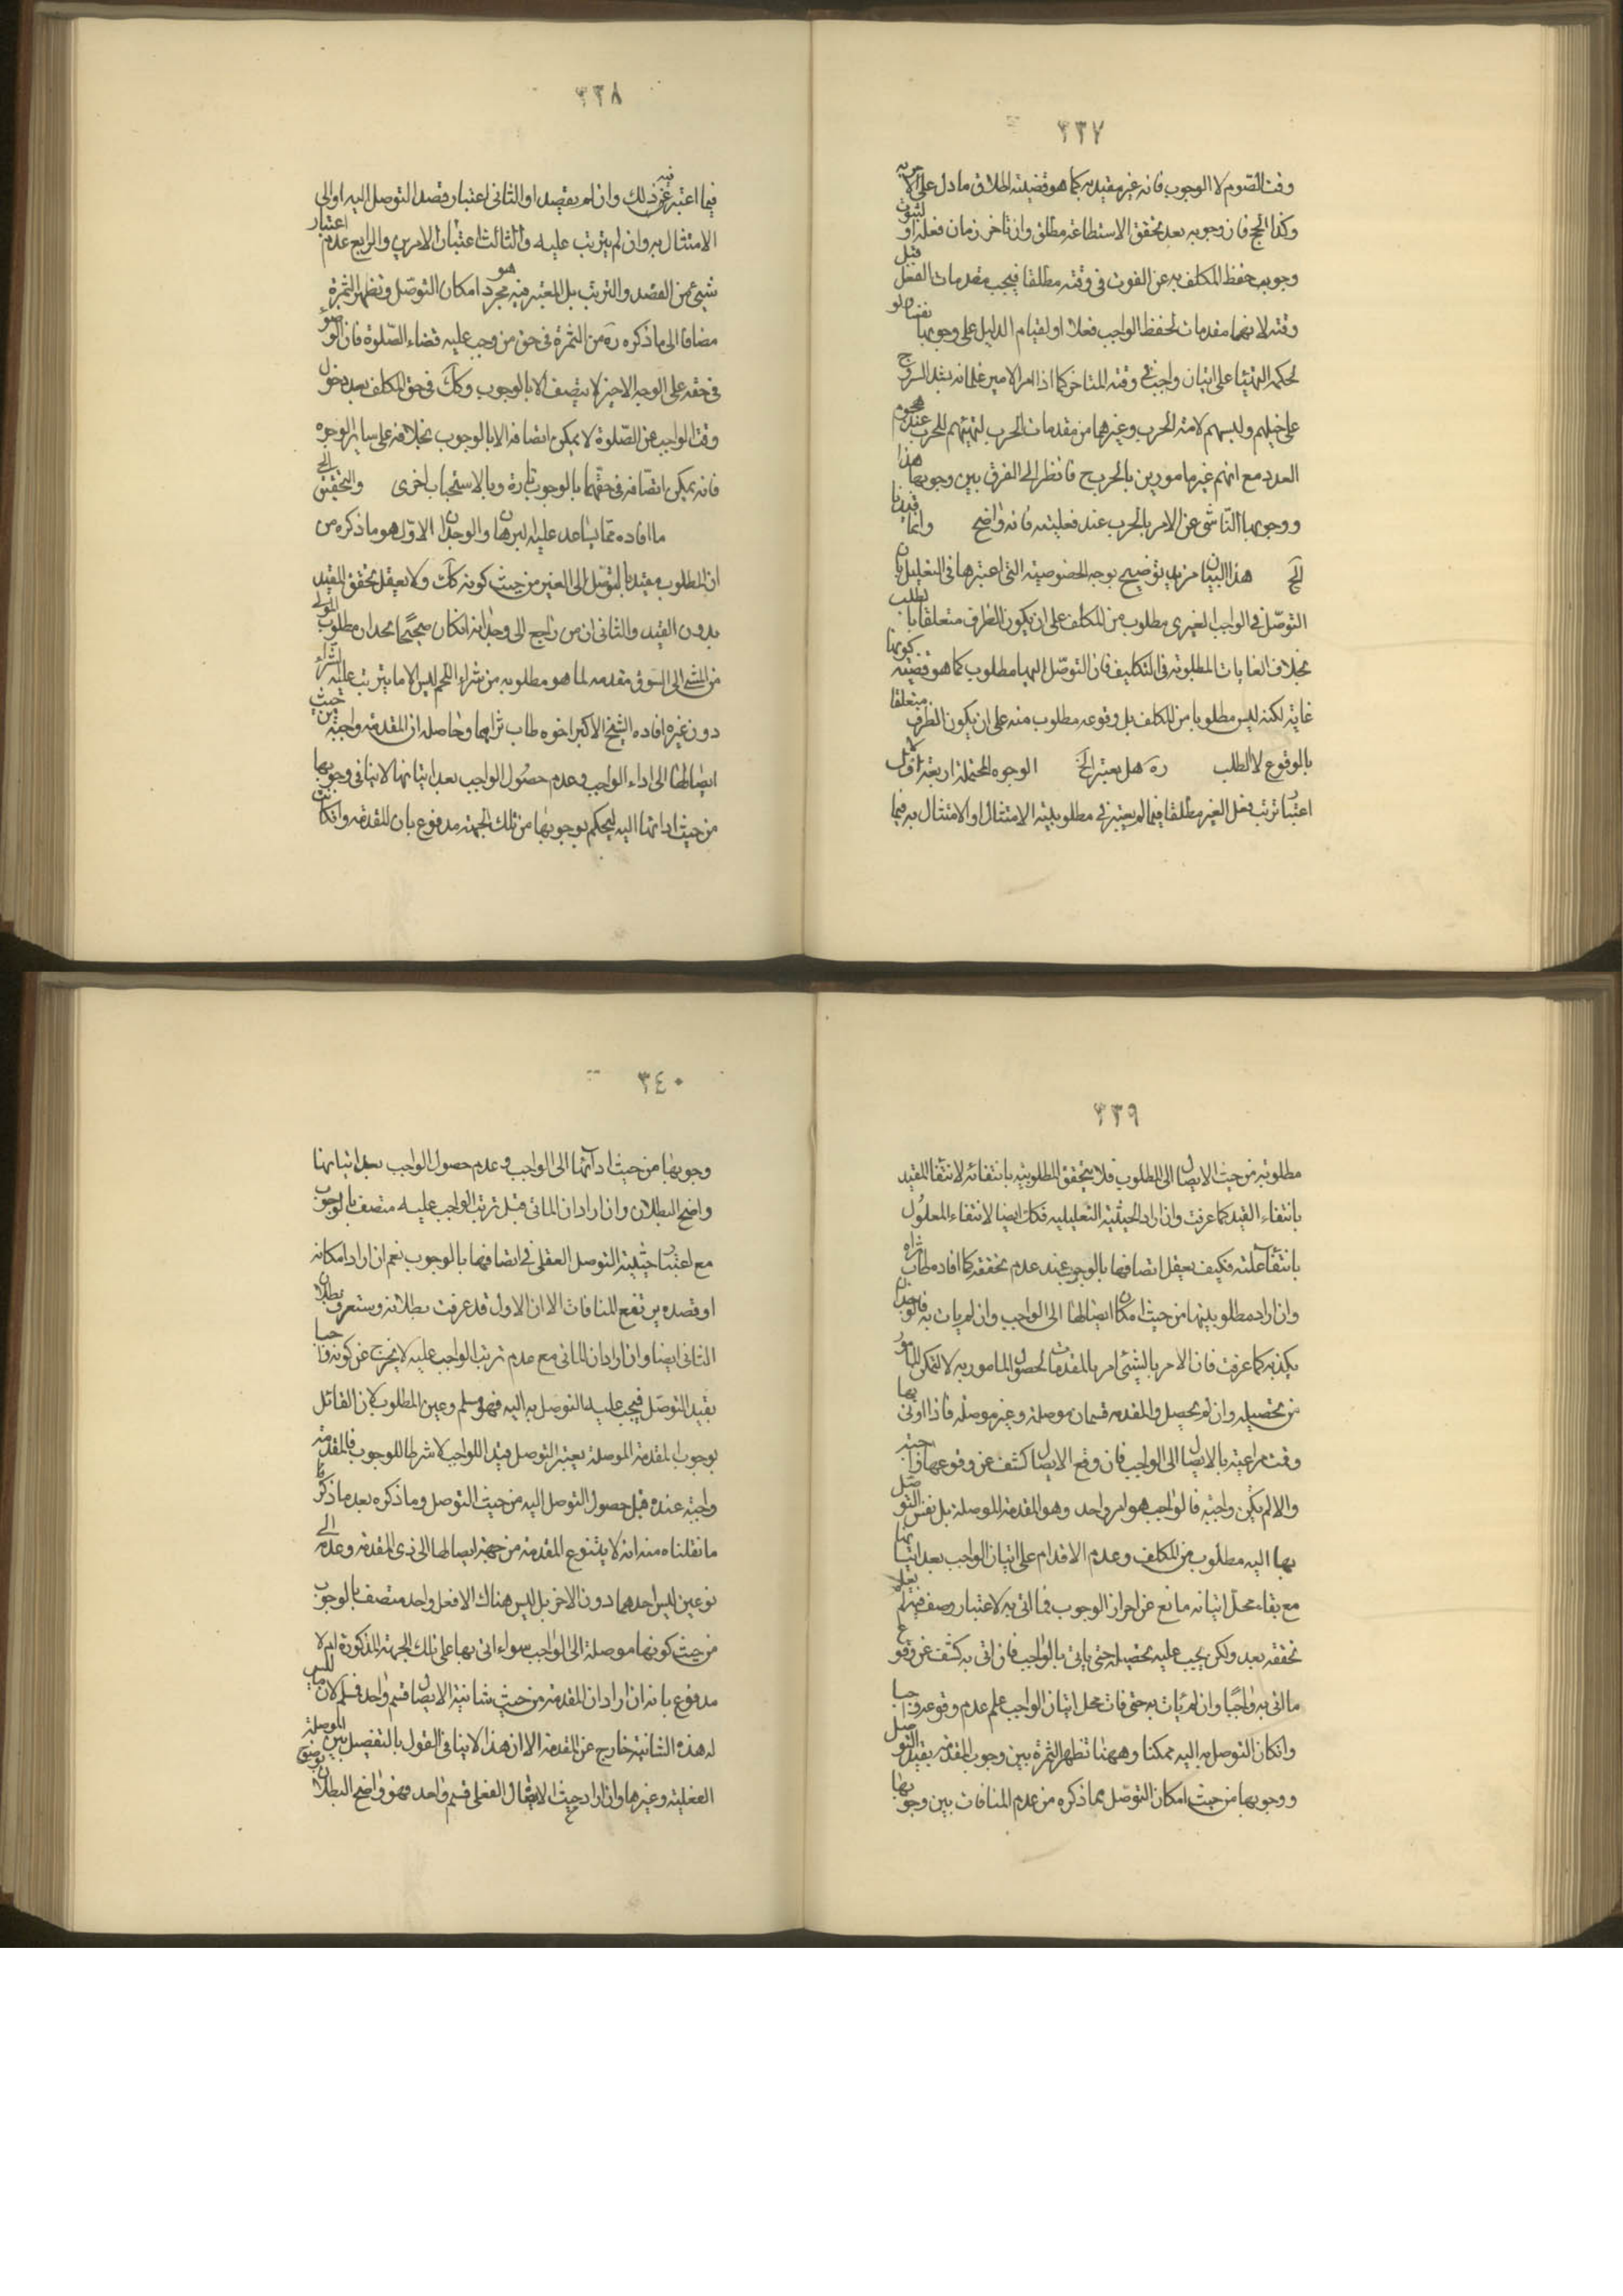 ٣٣٧
وقت الصّوم لا الوجوب فانه غير مقيد به كما هو قضيته اطلاق ما دل على
وكذا الحج فان وجوبه بعد تحقق الاستطاعة مطلق وان تاخر زمان فعله او لثبوت
وجوب حفظ المكلف به عن الفوت فى وقته مطلقا فيجب مقدمات الفعل قبل
وقته لانها مقدمات لحفظ الواجب فعلا او لقيام الدليل على وجوبها
لحكمة التهيّا على اتيان واجب فى وقته المتاخر كما اذا امر الامير غلمانه بشد السروج
على خيلهم ولبسهم لامة الحرب وغيرهما من مقدمات الحرب لتهيئهم للحرب عند هجوم
العدد مع انهم غير مامورين بالحرب ح فانظر الى الفرق بين وجوبها هذا
ووجوبها النّاشى عن الامر بالحرب عند فعليته فانه واضح وانما قيدنا
الخ هذا البيان مزيد توضيح بوجه الخصوصية التى اعتبرها فى التعليل بان
التوصّل فى الواجب الغيرى مطلوب من المكلف على ان يكون الظرف متعلقا بالطلب
بخلاف الغايات المطلوبة فى التكاليف فان التوصّل اليها مطلوب كما هو قضيته كونها
غاية لكنه ليس مطلوبا من المكلف بل وقوعه مطلوب منه على ان يكون الظرف متعلقا
بالوقوع لا الطلب ره هل يعتبر الخ الوجوه المحتملة اربعة الاول
اعتبار ترتب فعل الغير مطلقا فيما لم يعتبر فى مطلوبيته الامتثال او الامتثال به فيما
٣٣٨
فيما اعتبر فيه ذلك وان لم يقصد او الثانى اعتبار قصد التوصل اليه او الى
الامتثال به وان لم يترتب عليه والثالث اعتبار الامرين والرابع عدم اعتبار
شيئ من القصد والترتب بل المعتبر فيه هو مجرد امكان التوصّل وتظهر الثمرة
مضافا الى ما ذكره ره من الثمرة فى حق من وجب عليه قضاء الصّلوة فان الوضوء
فى حقه على الوجه الاخير لا يتصف الا بالوجوب وكك فى حق المكلف بعد دخول
وقت الواجب من الصّلوة لا يمكن اتصافه الا بالوجوب بخلافه على ساير الوجوه
فانه يمكن اتصافه فى حقهما بالوجوب تارة وبالاستحباب اخرى والتحقيق الخ
ما افاده ممّا يساعد عليه البرهان والوجدان الاوّل هو ما ذكره من
ان المطلوب مقيد بالتوصّل الى الغير من حيث كونه كك ولا يعقل تحقق المقيد
بدون القيد والثانى ان من راجع الى وجدانه ان كان صحيحًا يجد ان مطلوب المولى
من المشى الى السوق مقدمة لما هو مطلوبه من شراء اللحم ليس الا ما يترتب عليه الشراء
دون غيره افاده الشيخ الاكبر اخوه طاب ثراهما وحاصله ان المقدمة واجبة من حيث
ايصالها الى اداء الواجب وعدم حصول الواجب بعد اتيانها لا ينافى وجوبها
من حيث ادائها اليه ليحكم بوجوبها من تلك الجهة مدفوع بان المقدمة وان كانت
٣٣٩
مطلوبة من حيث الايصال الى المطلوب فلا يتحقق المطلوبية بانتفائه لانتفاء المقيد
بانتفاء القيد كما عرفت وان اراد الحيثية التعليلية فكك ايضا لانتفاء المعلول
بانتفاء علته فكيف يعقل اتصافها بالوجوب عند عدم تحققه كما افاده طاب ثراه
وان اراد مطلوبيتها من حيث امكان ايصالها الى الواجب وان لم يات به فالوجدان
يكذبه كما عرفت فان الامر بالشيئ امر بالمقدمات لحصول المامور به لا لتمكن المامور
من تحصيله وان لم يحصل والمقدمة قسمان موصلة وغير موصلة فاذا اوتى بها
وقت مراعيته بالايصال الى الواجب فان وقع الايصال كشف عن وقوعها واجبة
والا لم يكن واجبة فالواجب هو امر واحد وهو المقدمة الموصلة بل نفس التوصّل
بها اليه مطلوب من المكلف وعدم الاقدام على اتيان الواجب بعد اتيانها
مع بقاء محل اتيانه مانع عن احراز الوجوب فيما اتى به لاعتبار وصف فيه لم يعلم
تحققه بعد ولكن يجب عليه تحصيله حتى ياتى بالواجب فان اتى به كشف عن وقوع
ما اتى به واجبًا وان لم يات به حتى فات محل اتيان الواجب علم عدم وقوعه واجبا
وان كان التوصل به اليه ممكنا وههنا تظهر الثمرة بين وجوب المقدمة بقيد التوصل
ووجوبها من حيث امكان التوصّل مما ذكره من عدم المنافات بين وجوبها
٣٤٠
وجوبها من حيث ادائها الى الواجب وعدم حصول الواجب بعد اتيانها
واضح البطلان وان اراد ان الماتى قبل ترتب الواجب عليه متصف بالوجوب
مع اعتبار حيثية التوصل العقلى فى اتصافها بالوجوب نعم ان اراد امكانه
او قصده يرتفع المنافات الا ان الاول قد عرفت بطلانه وستعرف بطلان
الثانى ايضا وان اراد ان الماتى مع عدم ترتب الواجب عليه لا يخرج عن كونه واجبا
بقيد التوصّل فيجب عليه التوصل به اليه فهو مسلم وعين المطلوب لان القائل
بوجوب المقدمة الموصلة يعتبر التوصل قيدا للواجب لا شرطا للوجوب فالمقدمة
واجبة عنده قبل حصول التوصل اليه من حيث التوصل وما ذكره بعد ما ذكر
ما نقلناه منه انه لا يتنوع المقدمة من جهة ايصالها الى ذى المقدمة وعدمه الى
نوعين ليس احدهما دون الاخر بل ليس هناك الا فعل واحد متصف بالوجوب
من حيث كونها موصلة الى الواجب سواء اتى بها على تلك الجهة المذكورة ام لا
مدفوع بانه ان اراد ان المقدمة من حيث شانية الايصال قسم واحد فمسلم لان ما ليس
له هذه الشانية خارج عن المقدمة الا ان هذا لا ينافى القول بالتفصيل بين الموصلة
الفعلية وغيرها وان اراد حيث الايصال الفعلى قسم واحد فهو واضح البطلان